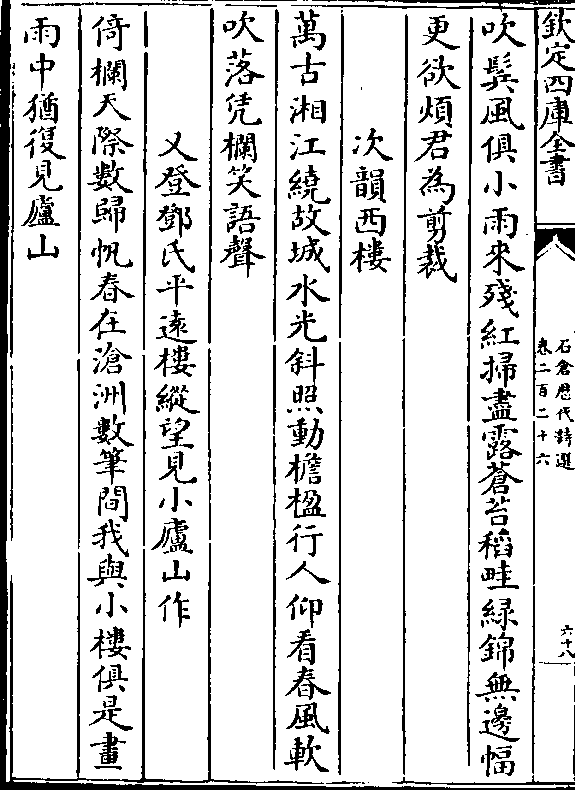 欽定四庫全書
石倉歷代詩選
卷二百二十六
六十八
吹鬂風俱小雨來殘紅掃盡露蒼苔稻畦緑錦無邊幅
更欲煩君為剪裁
次韻西樓
萬古湘江繞故城水光斜照動檐楹行人仰看春風軟
吹落凭欄笑語聲
又登鄧氏平遠樓縱望見小廬山作
倚欄天際數歸帆春在滄洲數筆間我與小樓俱是畫
雨中猶復見廬山